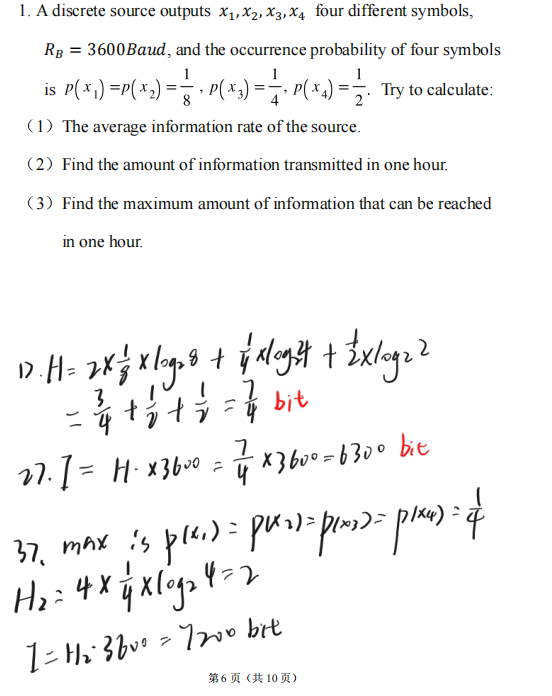 1. A discrete source outputs x₁, x₂, x₃, x₄ four different symbols,
R_B = 3600Baud, and the occurrence probability of four symbols
is p(x₁) =p(x₂) = 1/8 , p(x₃) = 1/4 , p(x₄) = 1/2 . Try to calculate:
（1）The average information rate of the source.
（2）Find the amount of information transmitted in one hour.
（3）Find the maximum amount of information that can be reached
in one hour.
1). H = 2 × 1/8 × log₂8 + 1/4 × log₂4 + 1/2 × log₂2
= 3/4 + 1/2 + 1/2 = 7/4 bit
2). I = H · ×3600 = 7/4 × 3600 = 6300 bit
3). max is p(x₁) = p(x₂) = p(x₃) = p(x₄) = 1/4
H₂ = 4 × 1/4 × log₂4 = 2
I = H₂ · 3600 = 7200 bit
第 6 页（共 10 页）